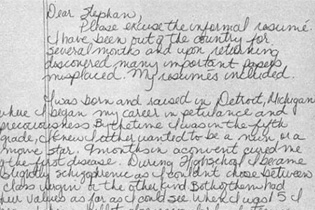 Dear Stephan,
Please excuse the informal resumé.
I have been out of the country for
several months and upon returning
discovered many important papers
misplaced. My resumés included.
I was born and raised in Detroit, Michigan
where I began my career in petulance and
preciousness. By the time I was in the fifth
grade I knew I either wanted to be a nun or a
movie star. 9 months in a convent cured me
of the first disease. During high school I became
slightly schizophrenic as I couldn't chose between
class virgin or the other kind. Both of them had
their values as far as I could see. When I was 15 I